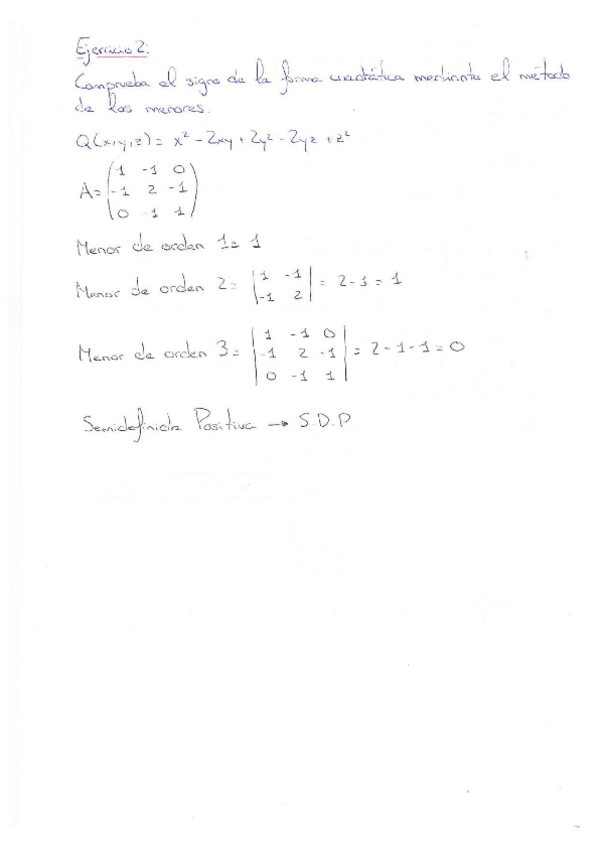 Ejercicio 2:
Comprueba el signo de la forma cuadrática mediante el método
de los menores.
Q(x,y,z) = x² - 2xy + 2y² - 2yz + z²
A = (1 -1 0
-1 2 -1
0 -1 1)
Menor de orden 1 = 1
Menor de orden 2 = |1 -1
-1 2| = 2-1 = 1
Menor de orden 3 = |1 -1 0
-1 2 -1
0 -1 1| = 2-1-1 = 0
Semidefinida Positiva → S.D.P